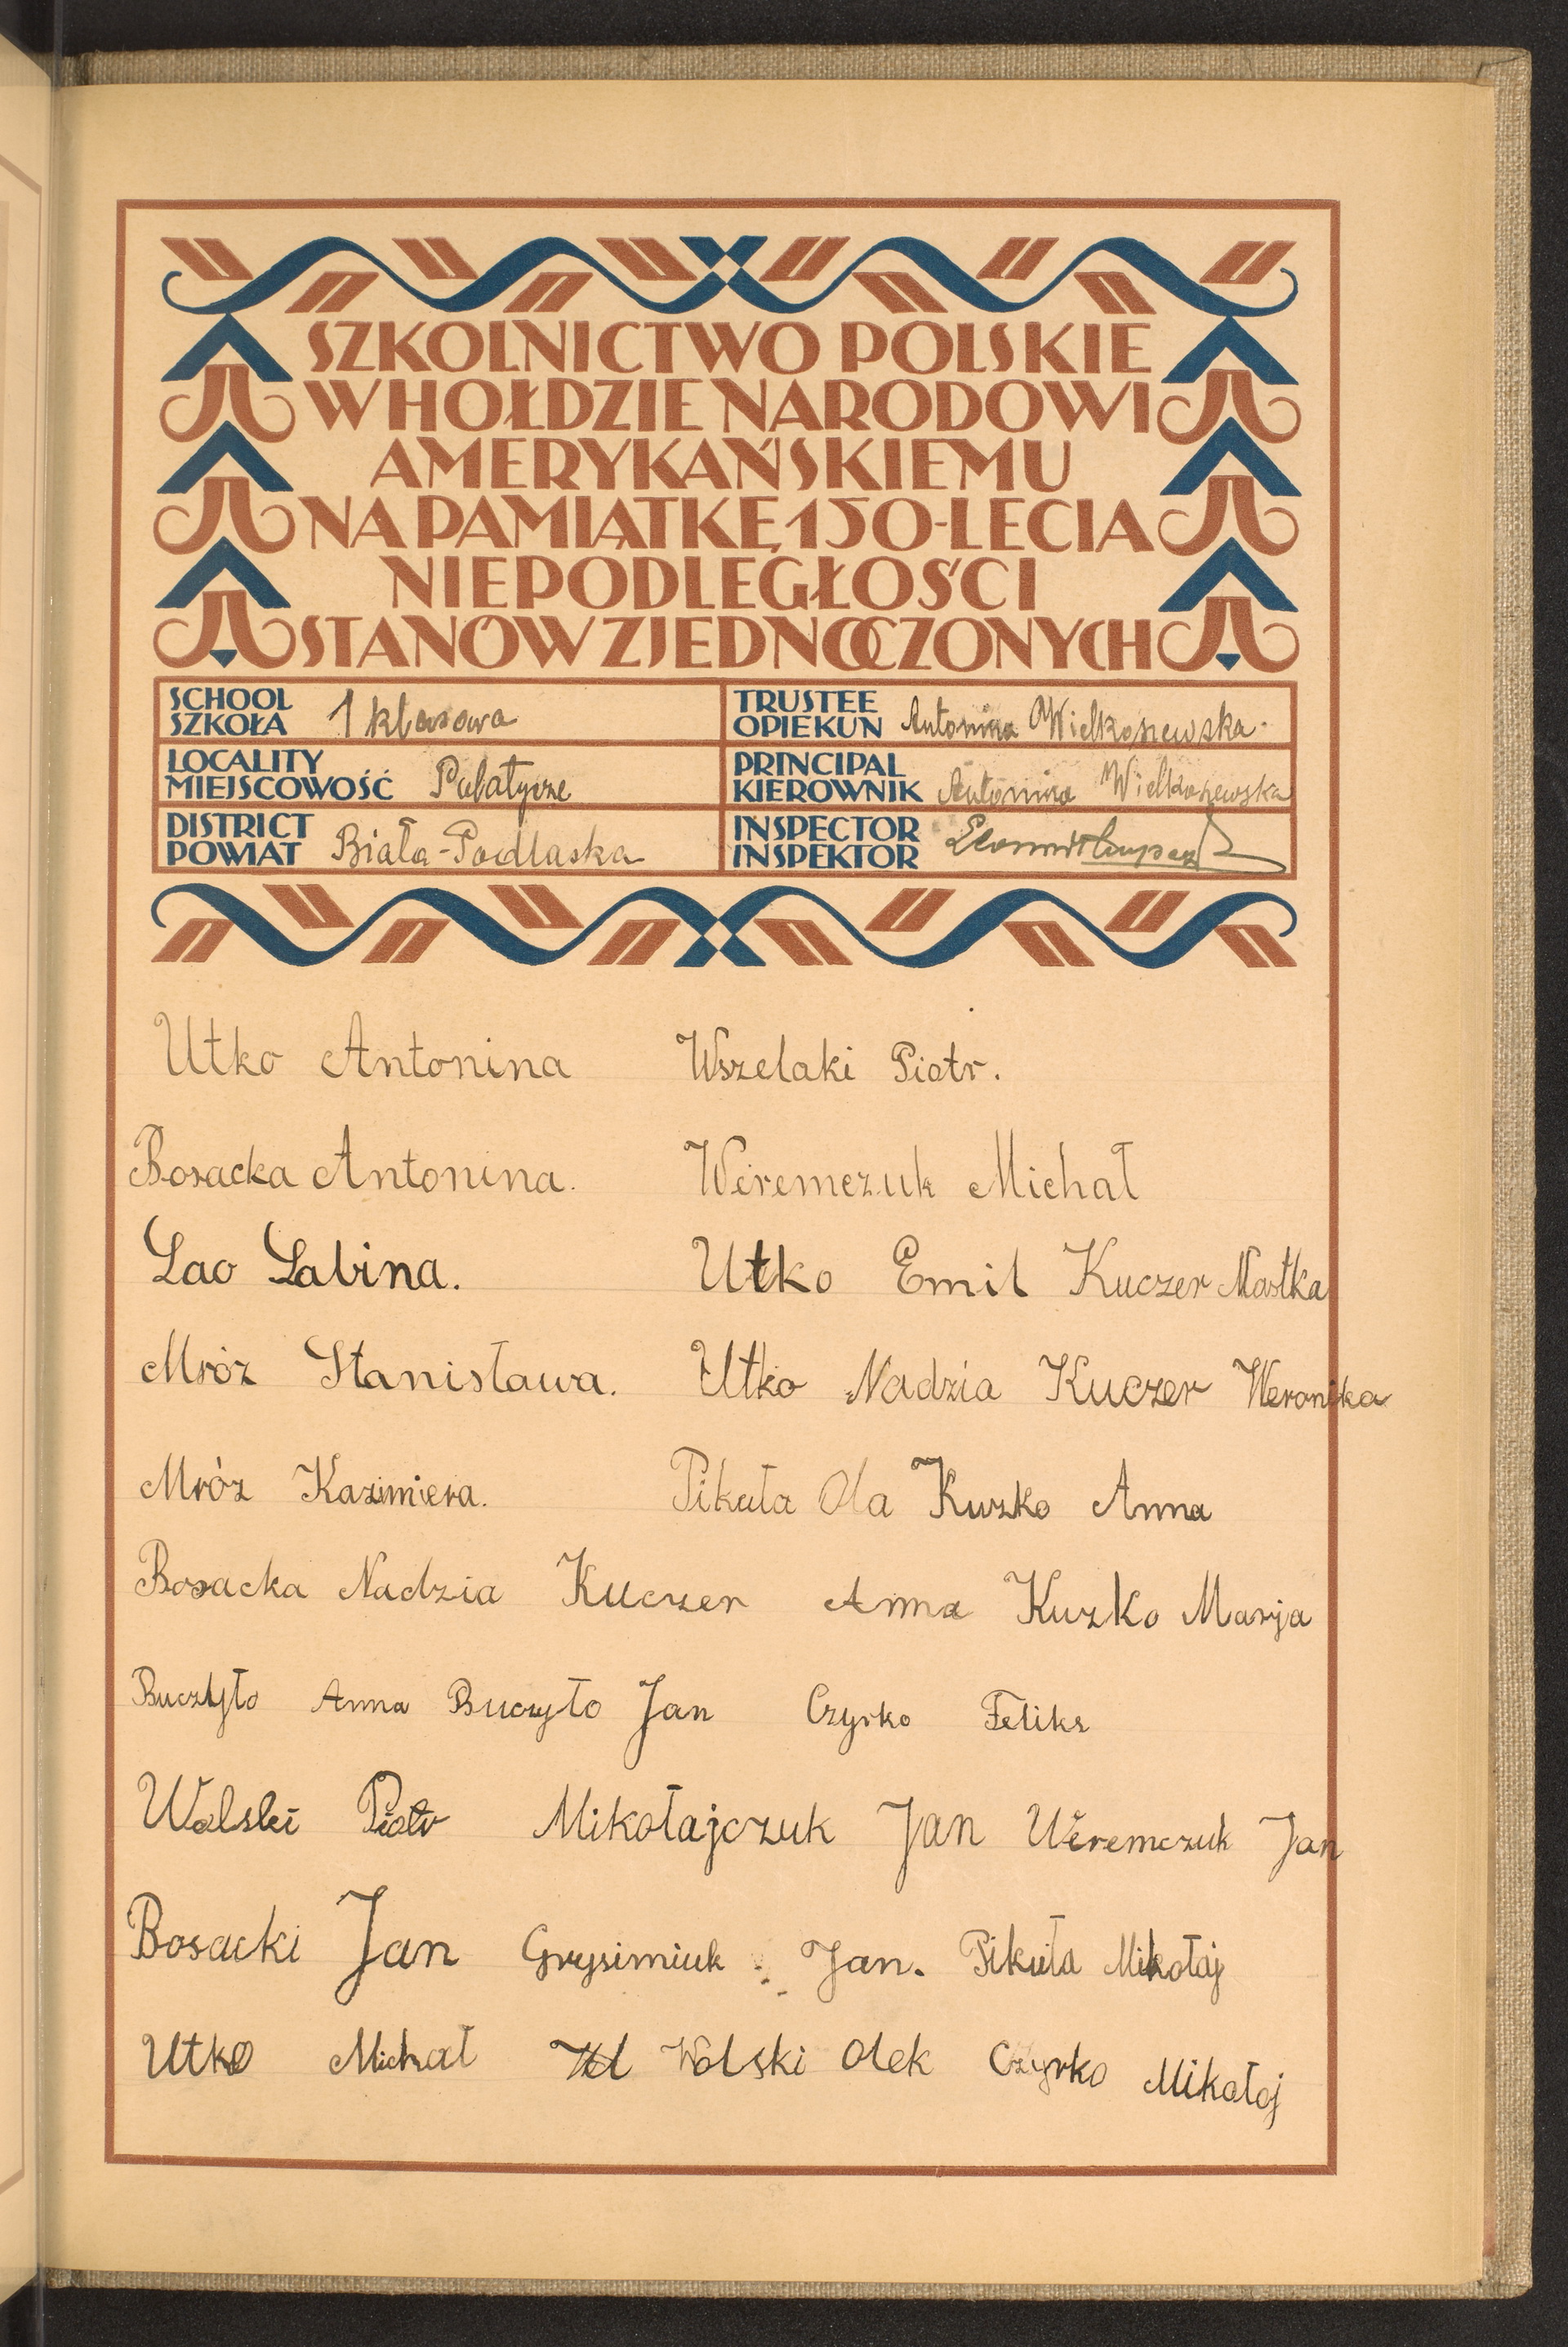 SZKOLNICTWO POLSKIE
W HOŁDZIE NARODOWI
AMERYKAŃSKIEMU
NA PAMIĄTKĘ 150-LECIA
NIEPODLEGŁOŚCI
STANÓW ZJEDNOCZONYCH
SCHOOL
SZKOŁA 1 klasowa
TRUSTEE
OPIEKUN Antonina Wielkoszewska
LOCALITY
MIEJSCOWOŚĆ Polatycze
PRINCIPAL
KIEROWNIK Antonina Wielkoszewska
DISTRICT
POWIAT Biała-Podlaska
INSPECTOR
INSPEKTOR
Utko Antonina Wszelaki Piotr.
Bosacka Antonina. Weremczuk Michał
Sac Sabina. Utko Emil Kuczer Nastka
Mróz Stanisława. Utko Nadzia Kuczer Weronika
Mróz Kazimiera. Pikuła Ola Kuzko Anna
Bosacka Nadzia Kuczer Anna Kuzko Marja
Buczyło Anna Buczyło Jan Czyrko Feliks
Wolski Piotr Mikołajczuk Jan Weremczuk Jan
Bosacki Jan Grysimiuk Jan. Pikuła Mikołaj
Utko Michał Wolski Olek Czyrko Mikołaj